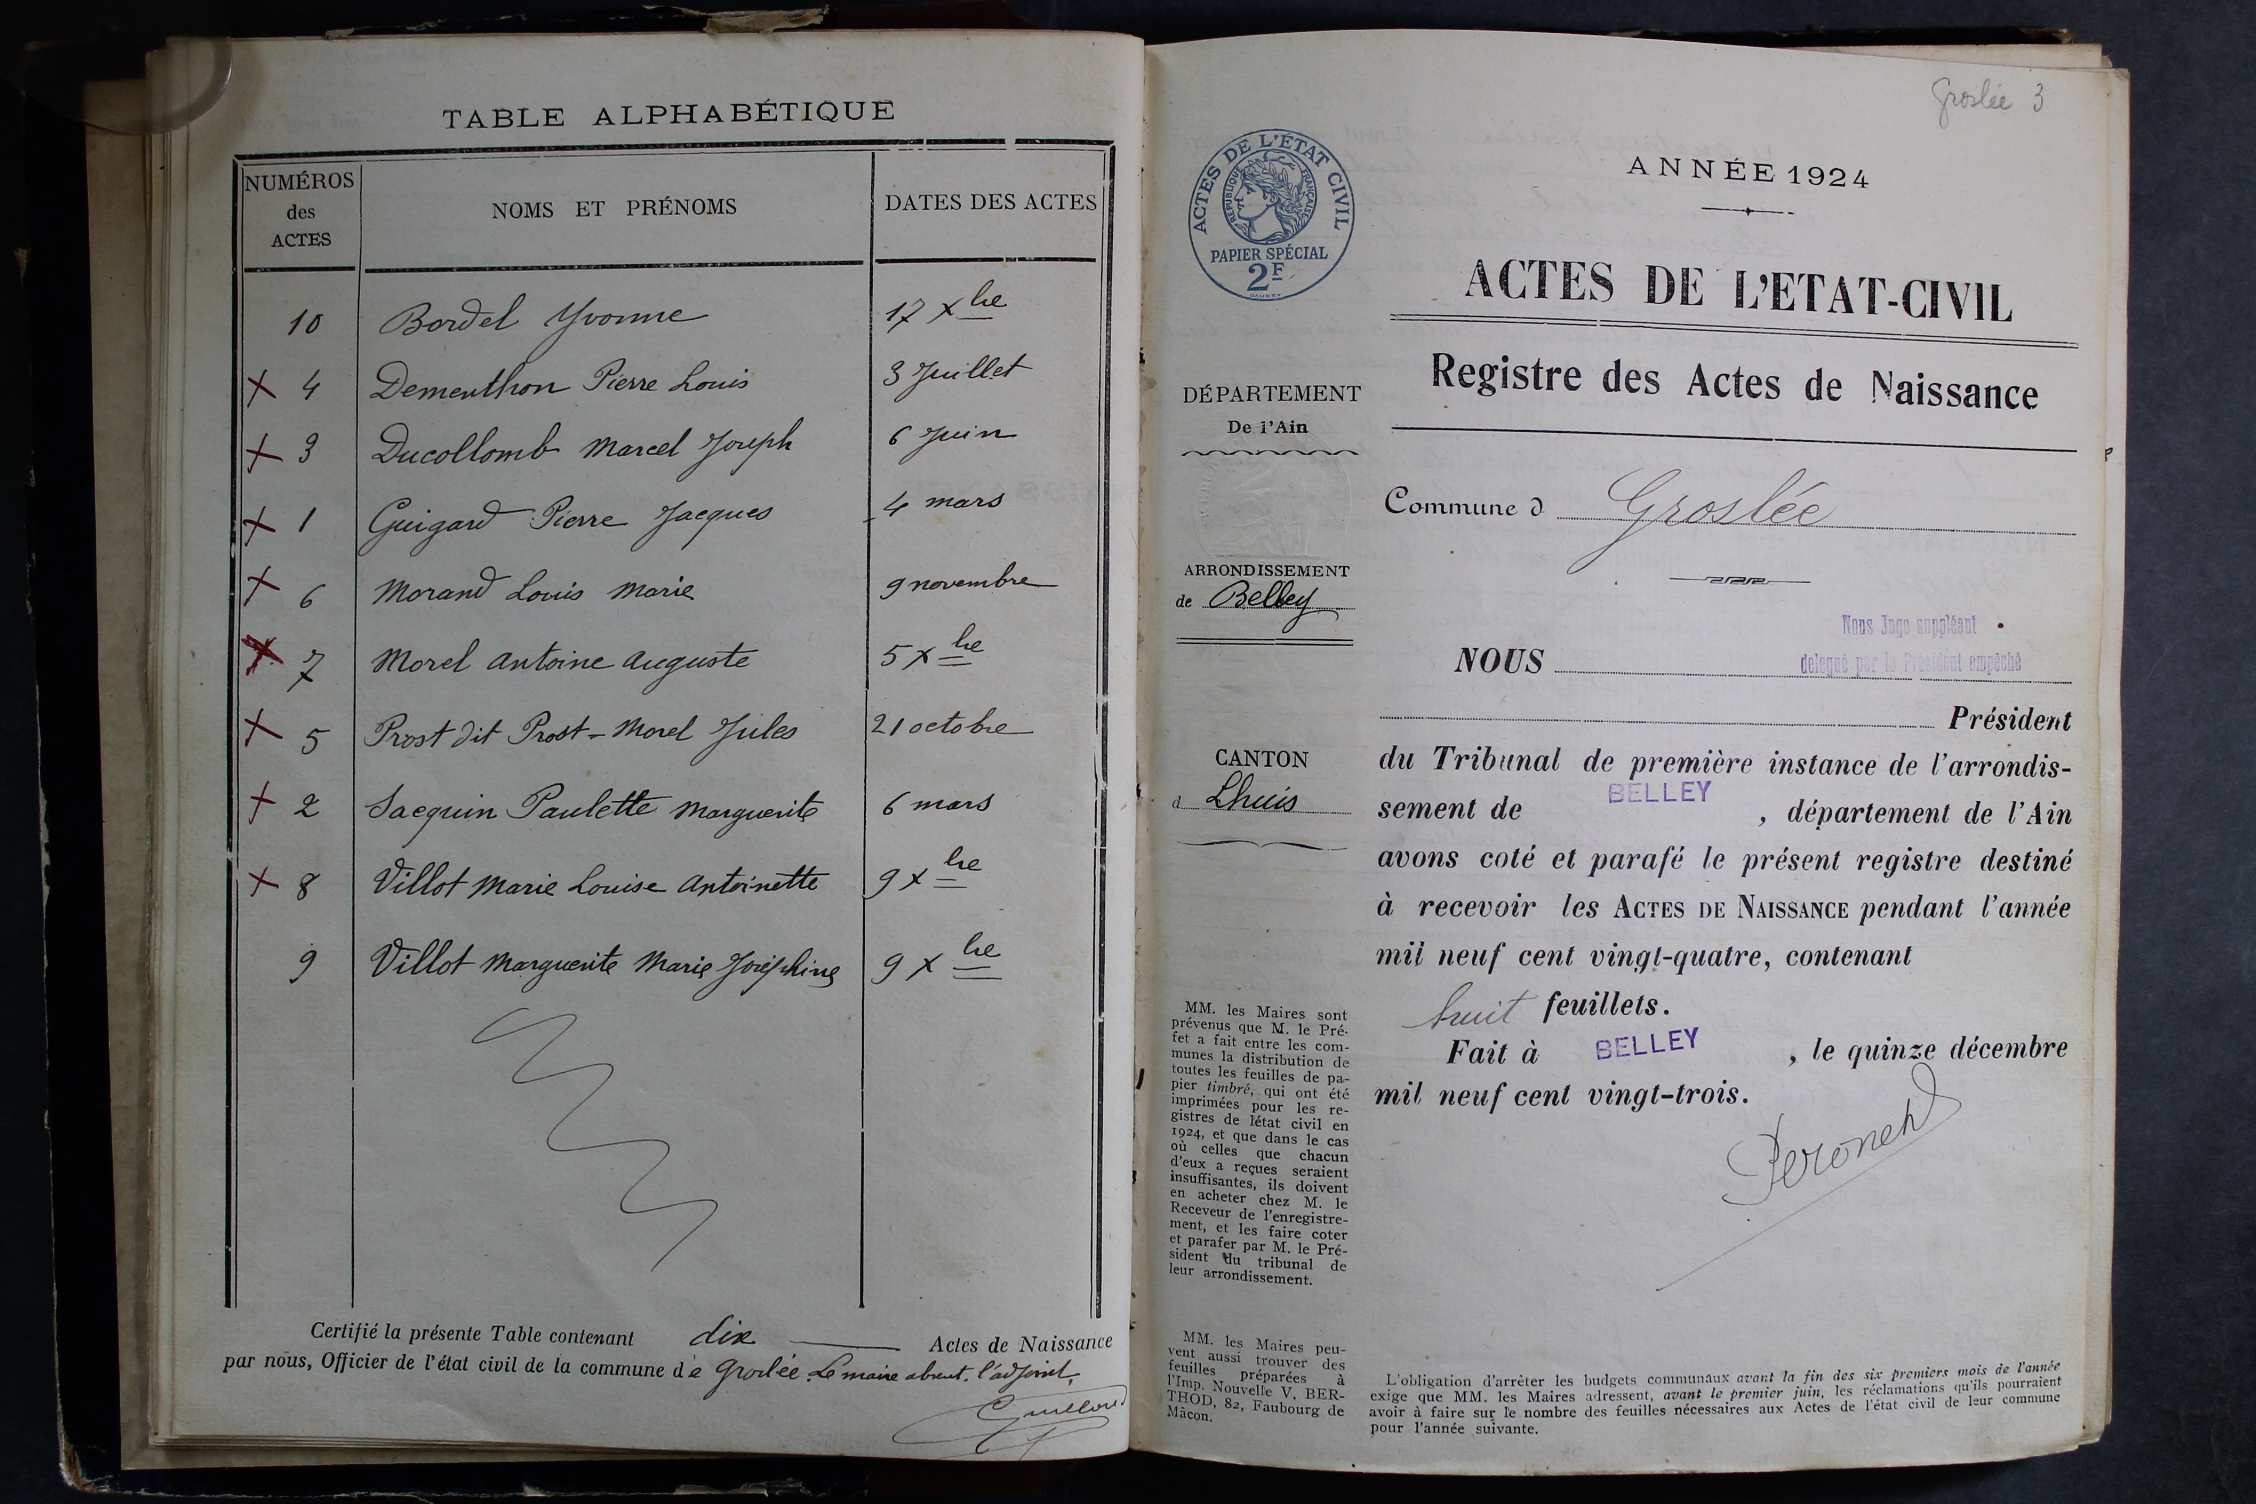 TABLE ALPHABÉTIQUE
NUMÉROS
des
ACTES
NOMS ET PRÉNOMS
DATES DES ACTES
10 Bordel Yvonne 17 xbre
x 4 Dementhon Pierre Louis 3 Juillet
x 3 Ducollomb Marcel Joseph 6 Juin
x 1 Guigard Pierre Jacques 4 mars
x 6 Morand Louis Marie 9 novembre
x 7 Morel Antoine Auguste 5 xbre
x 5 Prost dit Prost-Morel Jules 21 octobre
x 2 Jacquin Paulette Marguerite 6 mars
x 8 Villot Marie Louise Antoinette 9 xbre
9 Villot Marguerite Marie Joséphine 9 xbre
Certifié la présente Table contenant dix Actes de Naissance
par nous, Officier de l'état civil de la commune de Groslée. Le maire absent. l'adjoint.
Groslée 3
ACTES DE L'ÉTAT CIVIL
RÉPUBLIQUE FRANÇAISE
PAPIER SPÉCIAL
2F
ANNÉE 1924
ACTES DE L'ETAT-CIVIL
Registre des Actes de Naissance
DÉPARTEMENT
De l'Ain
Commune d Groslée
ARRONDISSEMENT
de Belley
Nous Juge suppléant
NOUS délégué par le Président empêché
Président
CANTON
d Lhuis
du Tribunal de première instance de l'arrondis-
sement de BELLEY , département de l'Ain
avons coté et parafé le présent registre destiné
à recevoir les ACTES DE NAISSANCE pendant l'année
mil neuf cent vingt-quatre, contenant
huit feuillets.
Fait à BELLEY , le quinze décembre
mil neuf cent vingt-trois.
MM. les Maires sont
prévenus que M. le Pré-
fet a fait entre les com-
munes la distribution de
toutes les feuilles de pa-
pier timbré, qui ont été
imprimées pour les re-
gistres de létat civil en
1924, et que dans le cas
où celles que chacun
d'eux a reçues seraient
insuffisantes, ils doivent
en acheter chez M. le
Receveur de l'enregistre-
ment, et les faire coter
et parafer par M. le Pré-
sident du tribunal de
leur arrondissement.
MM. les Maires peu-
vent aussi trouver des
feuilles préparées à
l'Imp. Nouvelle V. BER-
THOD, 82, Faubourg de
Mâcon.
L'obligation d'arrêter les budgets communaux avant la fin des six premiers mois de l'année
exige que MM. les Maires adressent, avant le premier juin, les réclamations qu'ils pourraient
avoir à faire sur le nombre des feuilles nécessaires aux Actes de l'état civil de leur commune
pour l'année suivante.